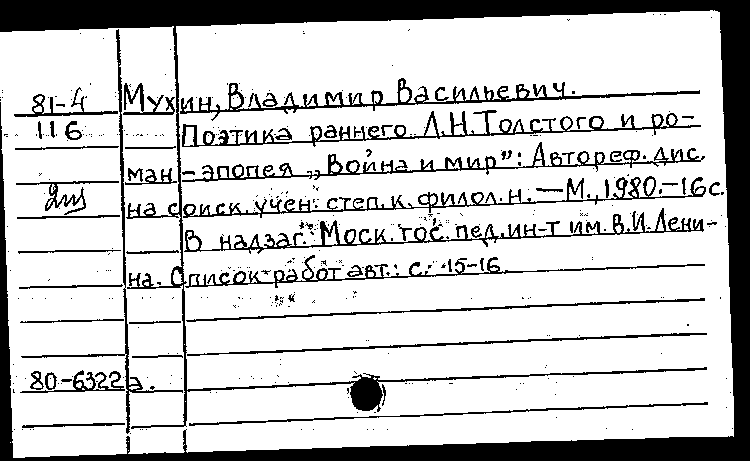 81-4 Мухин, Владимир Васильевич.
116 Поэтика раннего Л.Н.Толстого и ро-
ман-эпопея „Война и мир": Автореф. дис.
на соиск. учен. степ. к. филол. н. — М., 1980.-16с.
В надзаг.: Моск. гос. пед. ин-т им. В.И. Лени-
на. Список работ авт.: с. 15-16.
80-6322а.